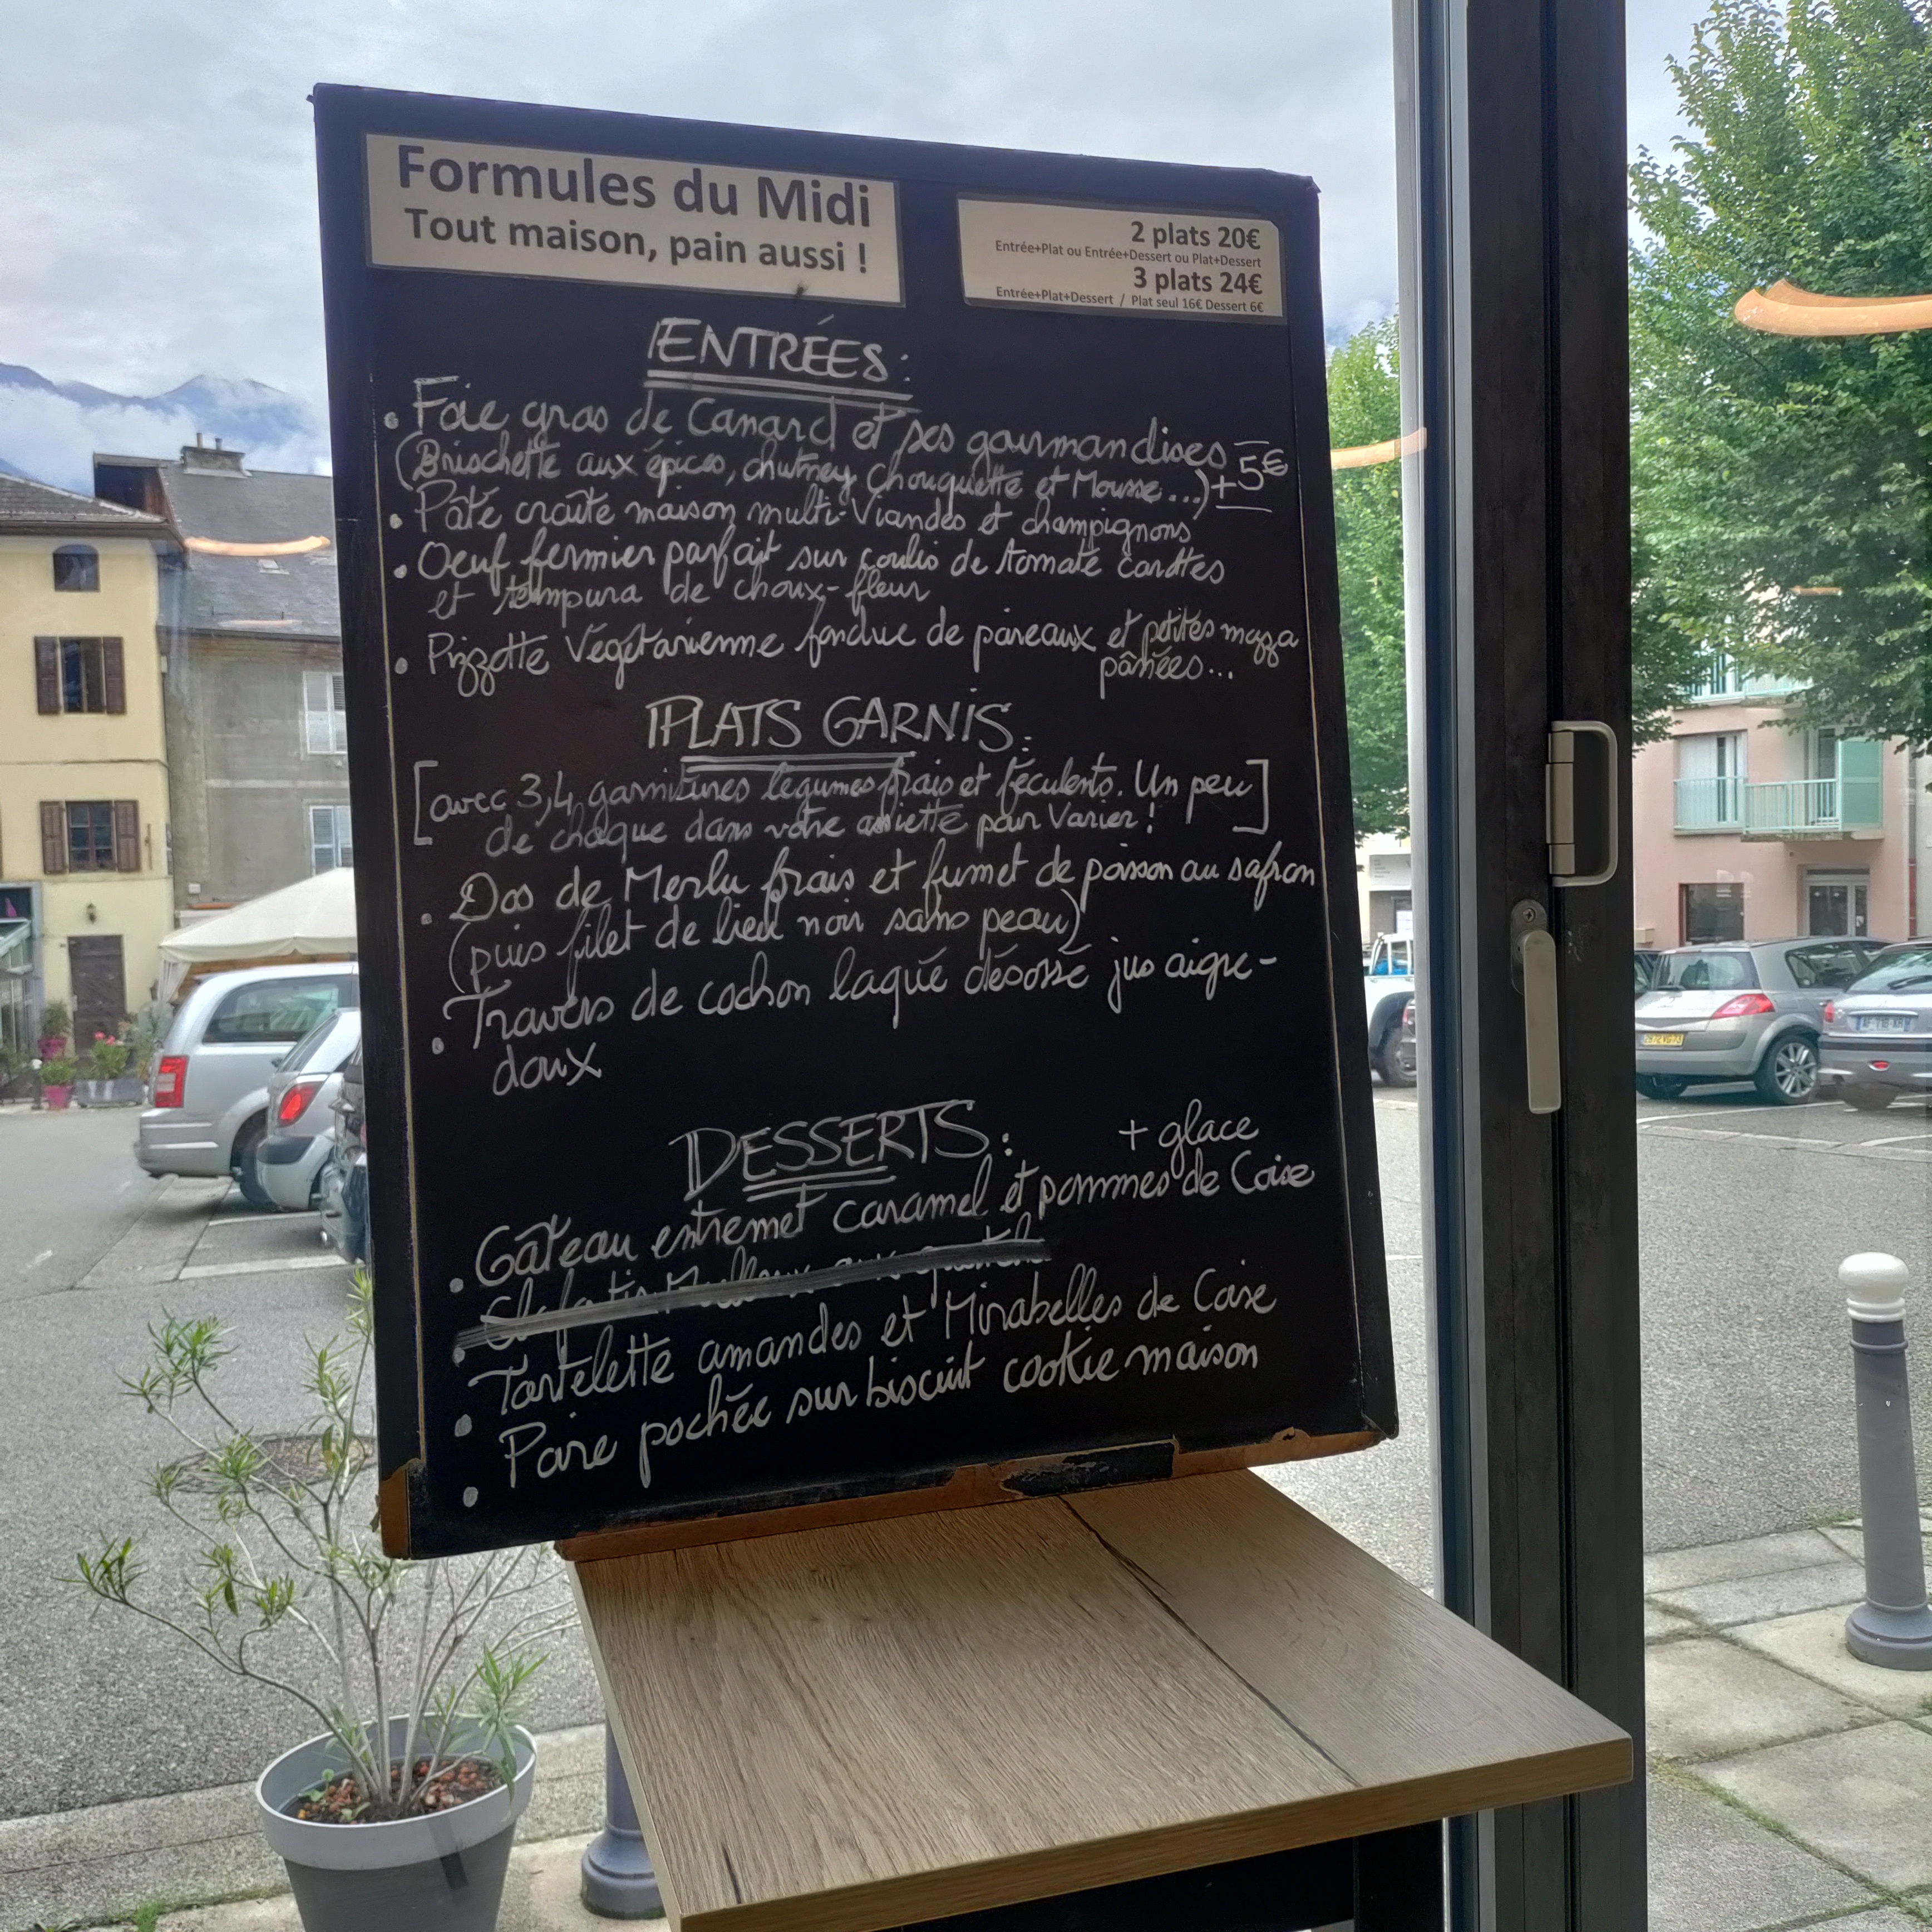 Formules du Midi
Tout maison, pain aussi !
2 plats 20€
Entrée+Plat ou Entrée+Dessert ou Plat+Dessert
3 plats 24€
Entrée+Plat+Dessert / Plat seul 16€ Dessert 6€
ENTRÉES:
• Foie gras de Canard et ses gourmandises
(Brischette aux épices, chutney Chouquette et Mousse...) +5€
• Pâté croûte maison multi-Viandes et champignons
• Oeuf fermier parfait sur coulis de tomate carottes
et tempura de choux-fleur
• Pizzette Végétarienne fondue de poireaux et petites mozza
pânées...
PLATS GARNIS:
[avec 3,4 garnitures légumes frais et féculents. Un peu
de chaque dans votre assiette pour Varier !]
• Dos de Merlu frais et fumet de poisson au safran
(puis filet de lieu noir sans peau)
• Travers de cochon laqué désossé jus aigre-
doux
DESSERTS:
+ glace
• Gâteau entremet caramel et pommes de Coise
• Tartelette amandes et Mirabelles de Coise
• Poire pochée sur biscuit cookie maison